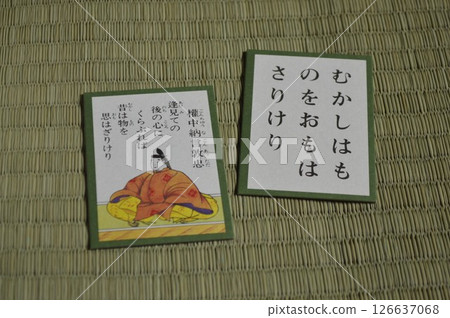 権中納言敦忠
逢見ての
後の心に
くらぶれば
昔は物を
思はざりけり
むかしはも
のをおもは
さりけり
126637068